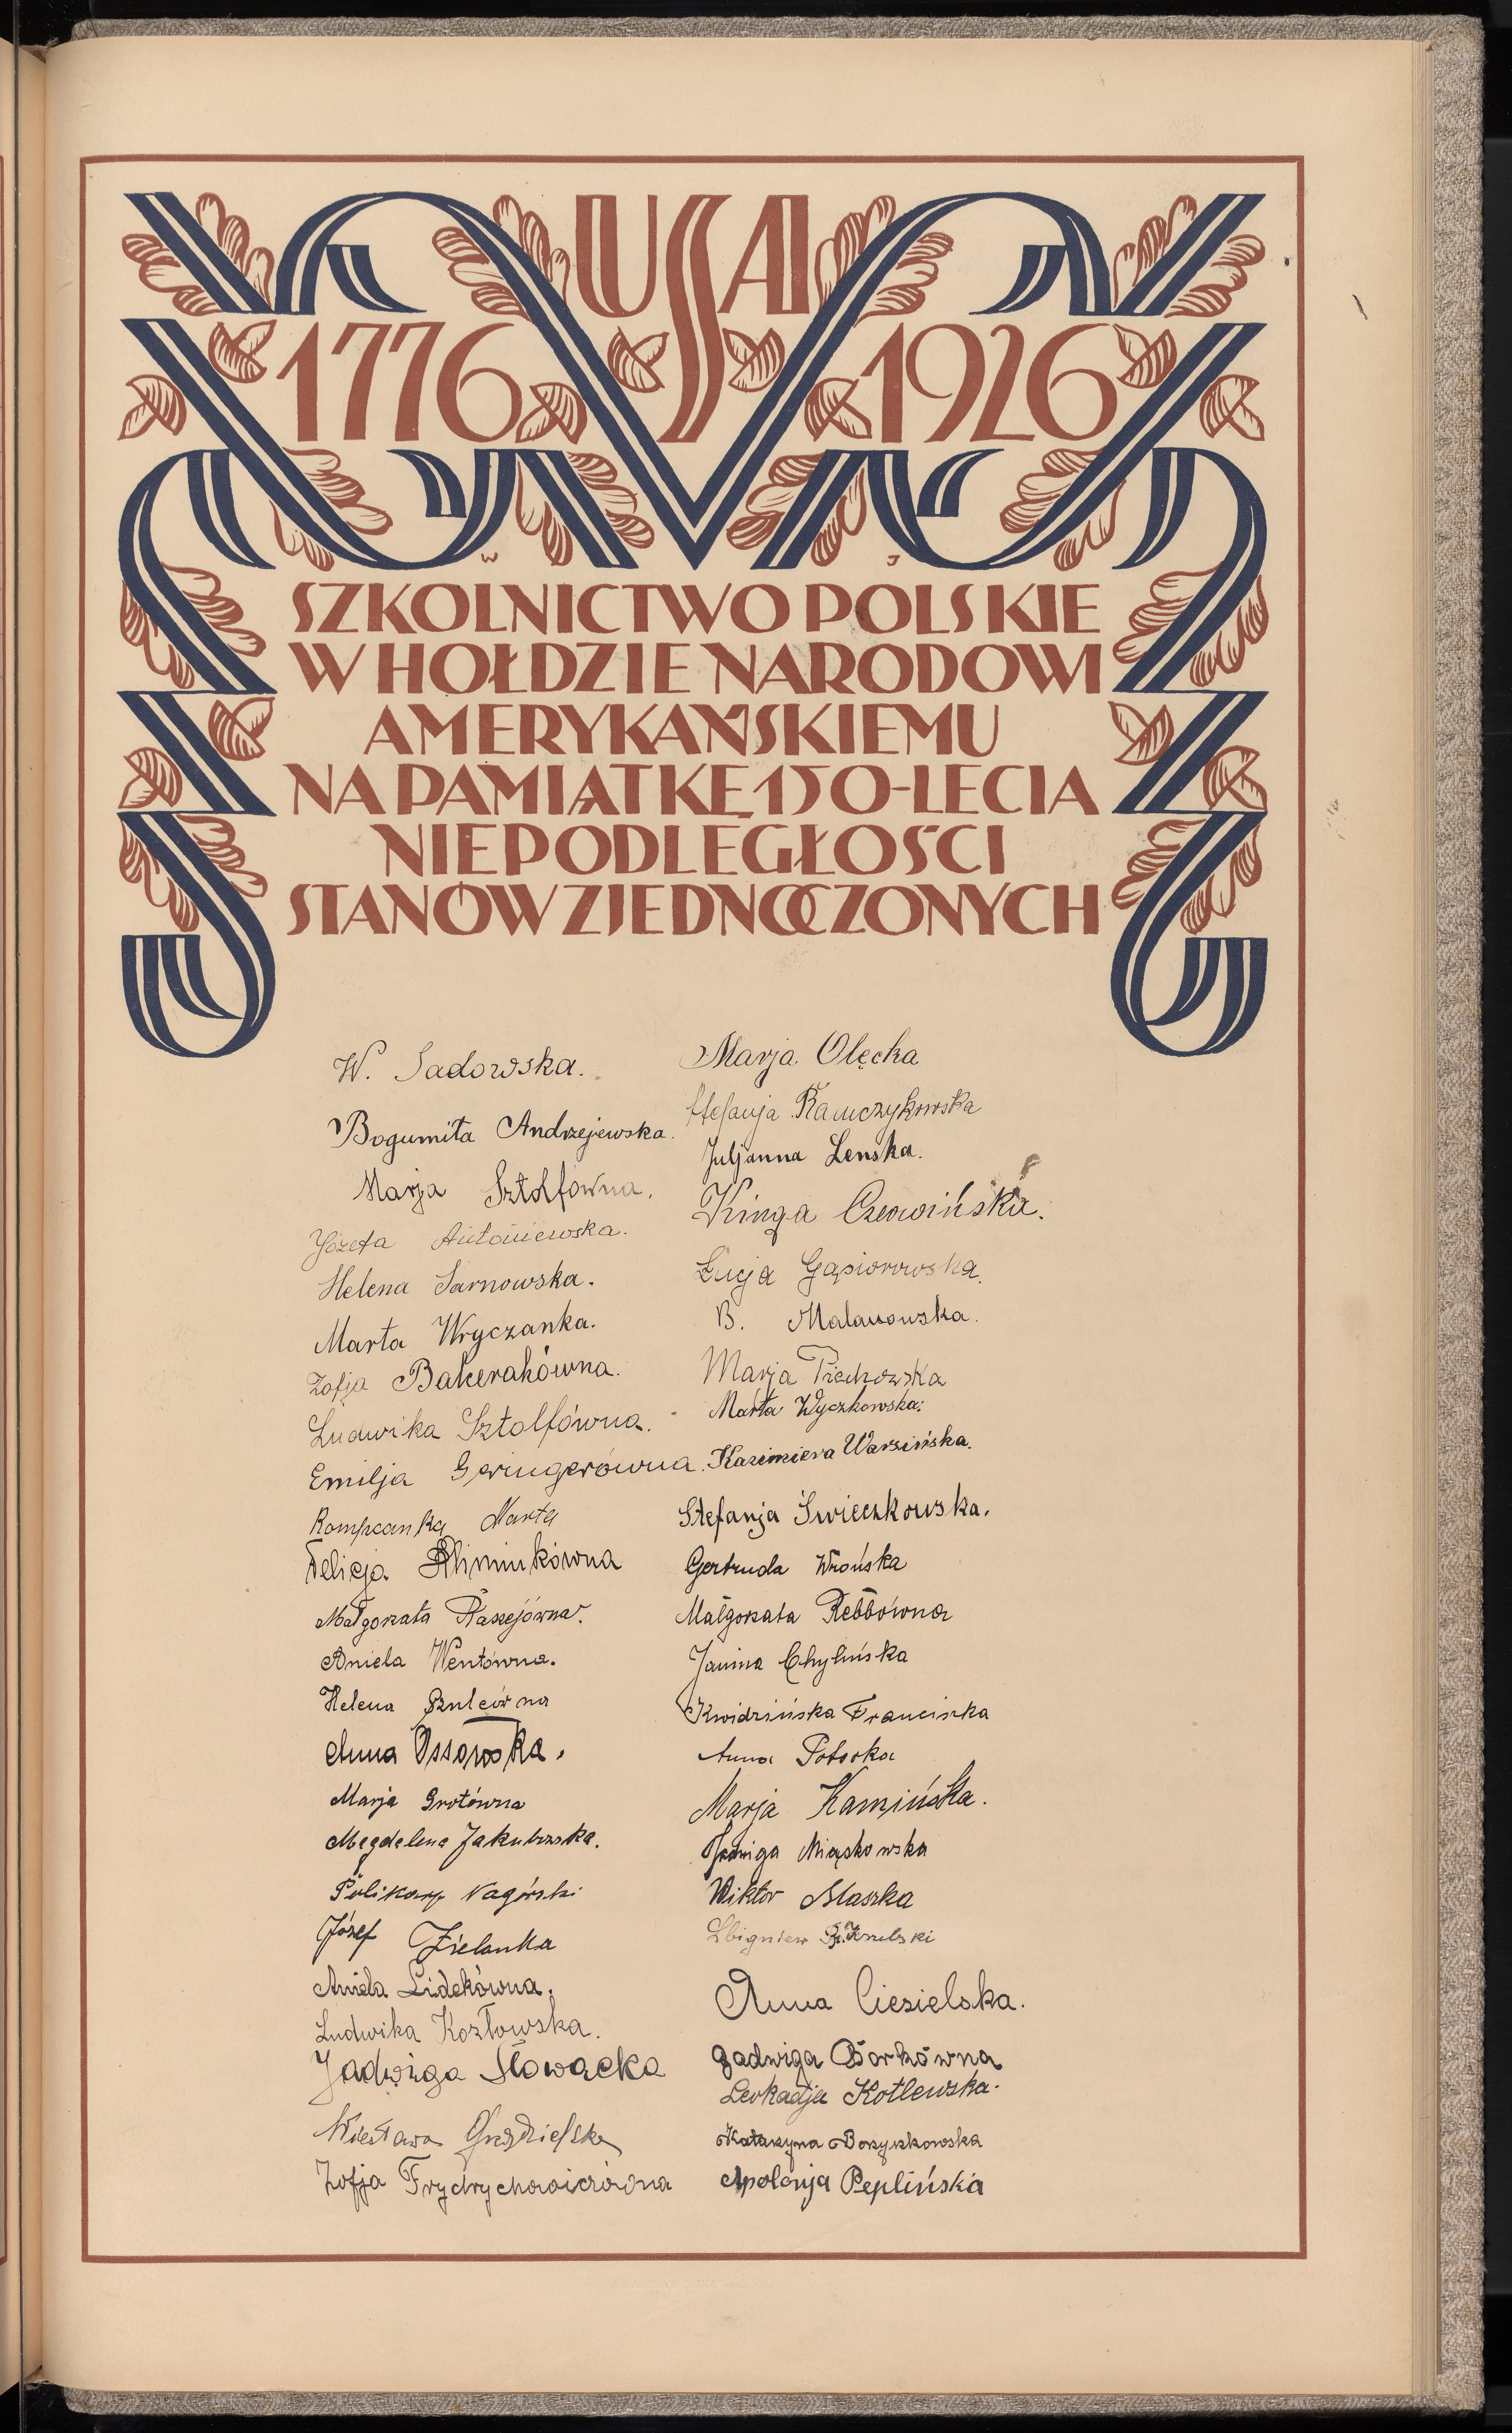 USA
1776 1926
W J
SZKOLNICTWO POLSKIE
W HOŁDZIE NARODOWI
AMERYKAŃSKIEMU
NA PAMIĄTKĘ 150-LECIA
NIEPODLEGŁOŚCI
STANÓW ZJEDNOCZONYCH
W. Sadowska.
Bogumiła Andrzejewska.
Marja Sztolfówna.
Józefa Antoniewska.
Helena Sarnowska.
Marta Wryczanka.
Zofja Bakerakówna.
Ludwika Sztolfówna.
Emilja Geringerówna.
Rompcanka Marta
Felicja
Małgorzata Raszejówna.
Aniela Wentówna.
Helena Szulcówna
Anna Ossowska.
Marja Grotówna
Magdalena Jakubowska.
Polikarp Nagórski
Józef Zielonka
Aniela Lidekówna.
Ludwika Kozłowska.
Jadwiga Słowacka
Wiesława
Zofja Frydrychowiczówna
Marja Olęcka
Stefanja Ramczykowska
Juljanna Lenska.
Kinga Czerwińska.
Łucja Gąsiorowska.
B. Malanowska.
Marja Piechowska
Marta Wyczkowska.
Kazimiera Warsińska.
Stefanja Świeczkowska.
Gertruda Wrońska
Małgorzata Rebbówna
Janina Chylińska
Kwidzińska Franciszka
Anna Potocka
Marja Kamińska.
Jadwiga Miąskowska
Wiktor Blaszka
Zbigniew
Anna Ciesielska.
Jadwiga Borkówna
Leokadja Kotlewska.
Katarzyna Borzyszkowska
Apolonja Peplińska